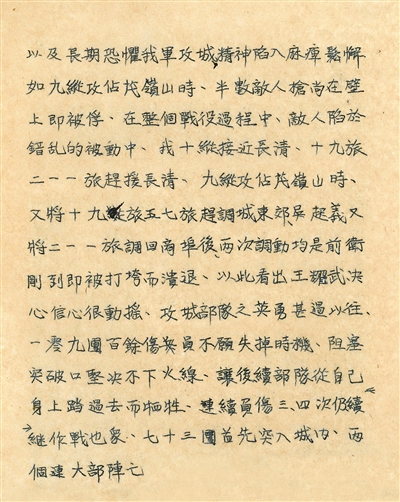 以及長期恐懼我軍攻城精神陷入麻痺鬆懈
如九縱攻佔茂嶺山時、半數敵人搶尚在壁
上即被俘、在整個戰役過程中、敵人陷於
錯乱的被動中、我十縱接近長清、十九旅
二一一旅趕援長清、九縱攻佔茂嶺山時、
又將十九旅五七旅趕調城東郊吳起義又
將二一一旅調回商埠後、两次調動均是前衛
剛到即被打垮而潰退、以此看出王耀武決
心信心很動搖、攻城部隊之英勇甚過以往、
一零九團百餘傷員不願失掉時機、阻塞
突破口坚决不下火線、讓後續部隊從自己
身上踏過去而牺牲、連續負傷三、四次仍續
継作戰也眾、七十三團首先突入城内、两
個連大部陣亡